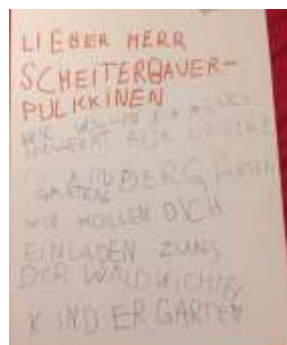 LIEBER HERR
SCHEITERBAUER-
PULKKINEN
WIR
FÜR
BERG
GARTEN
WIR WOLLEN DICH
EINLADEN ZUNS
DER WALDWICHTEL
KINDERGARTEN